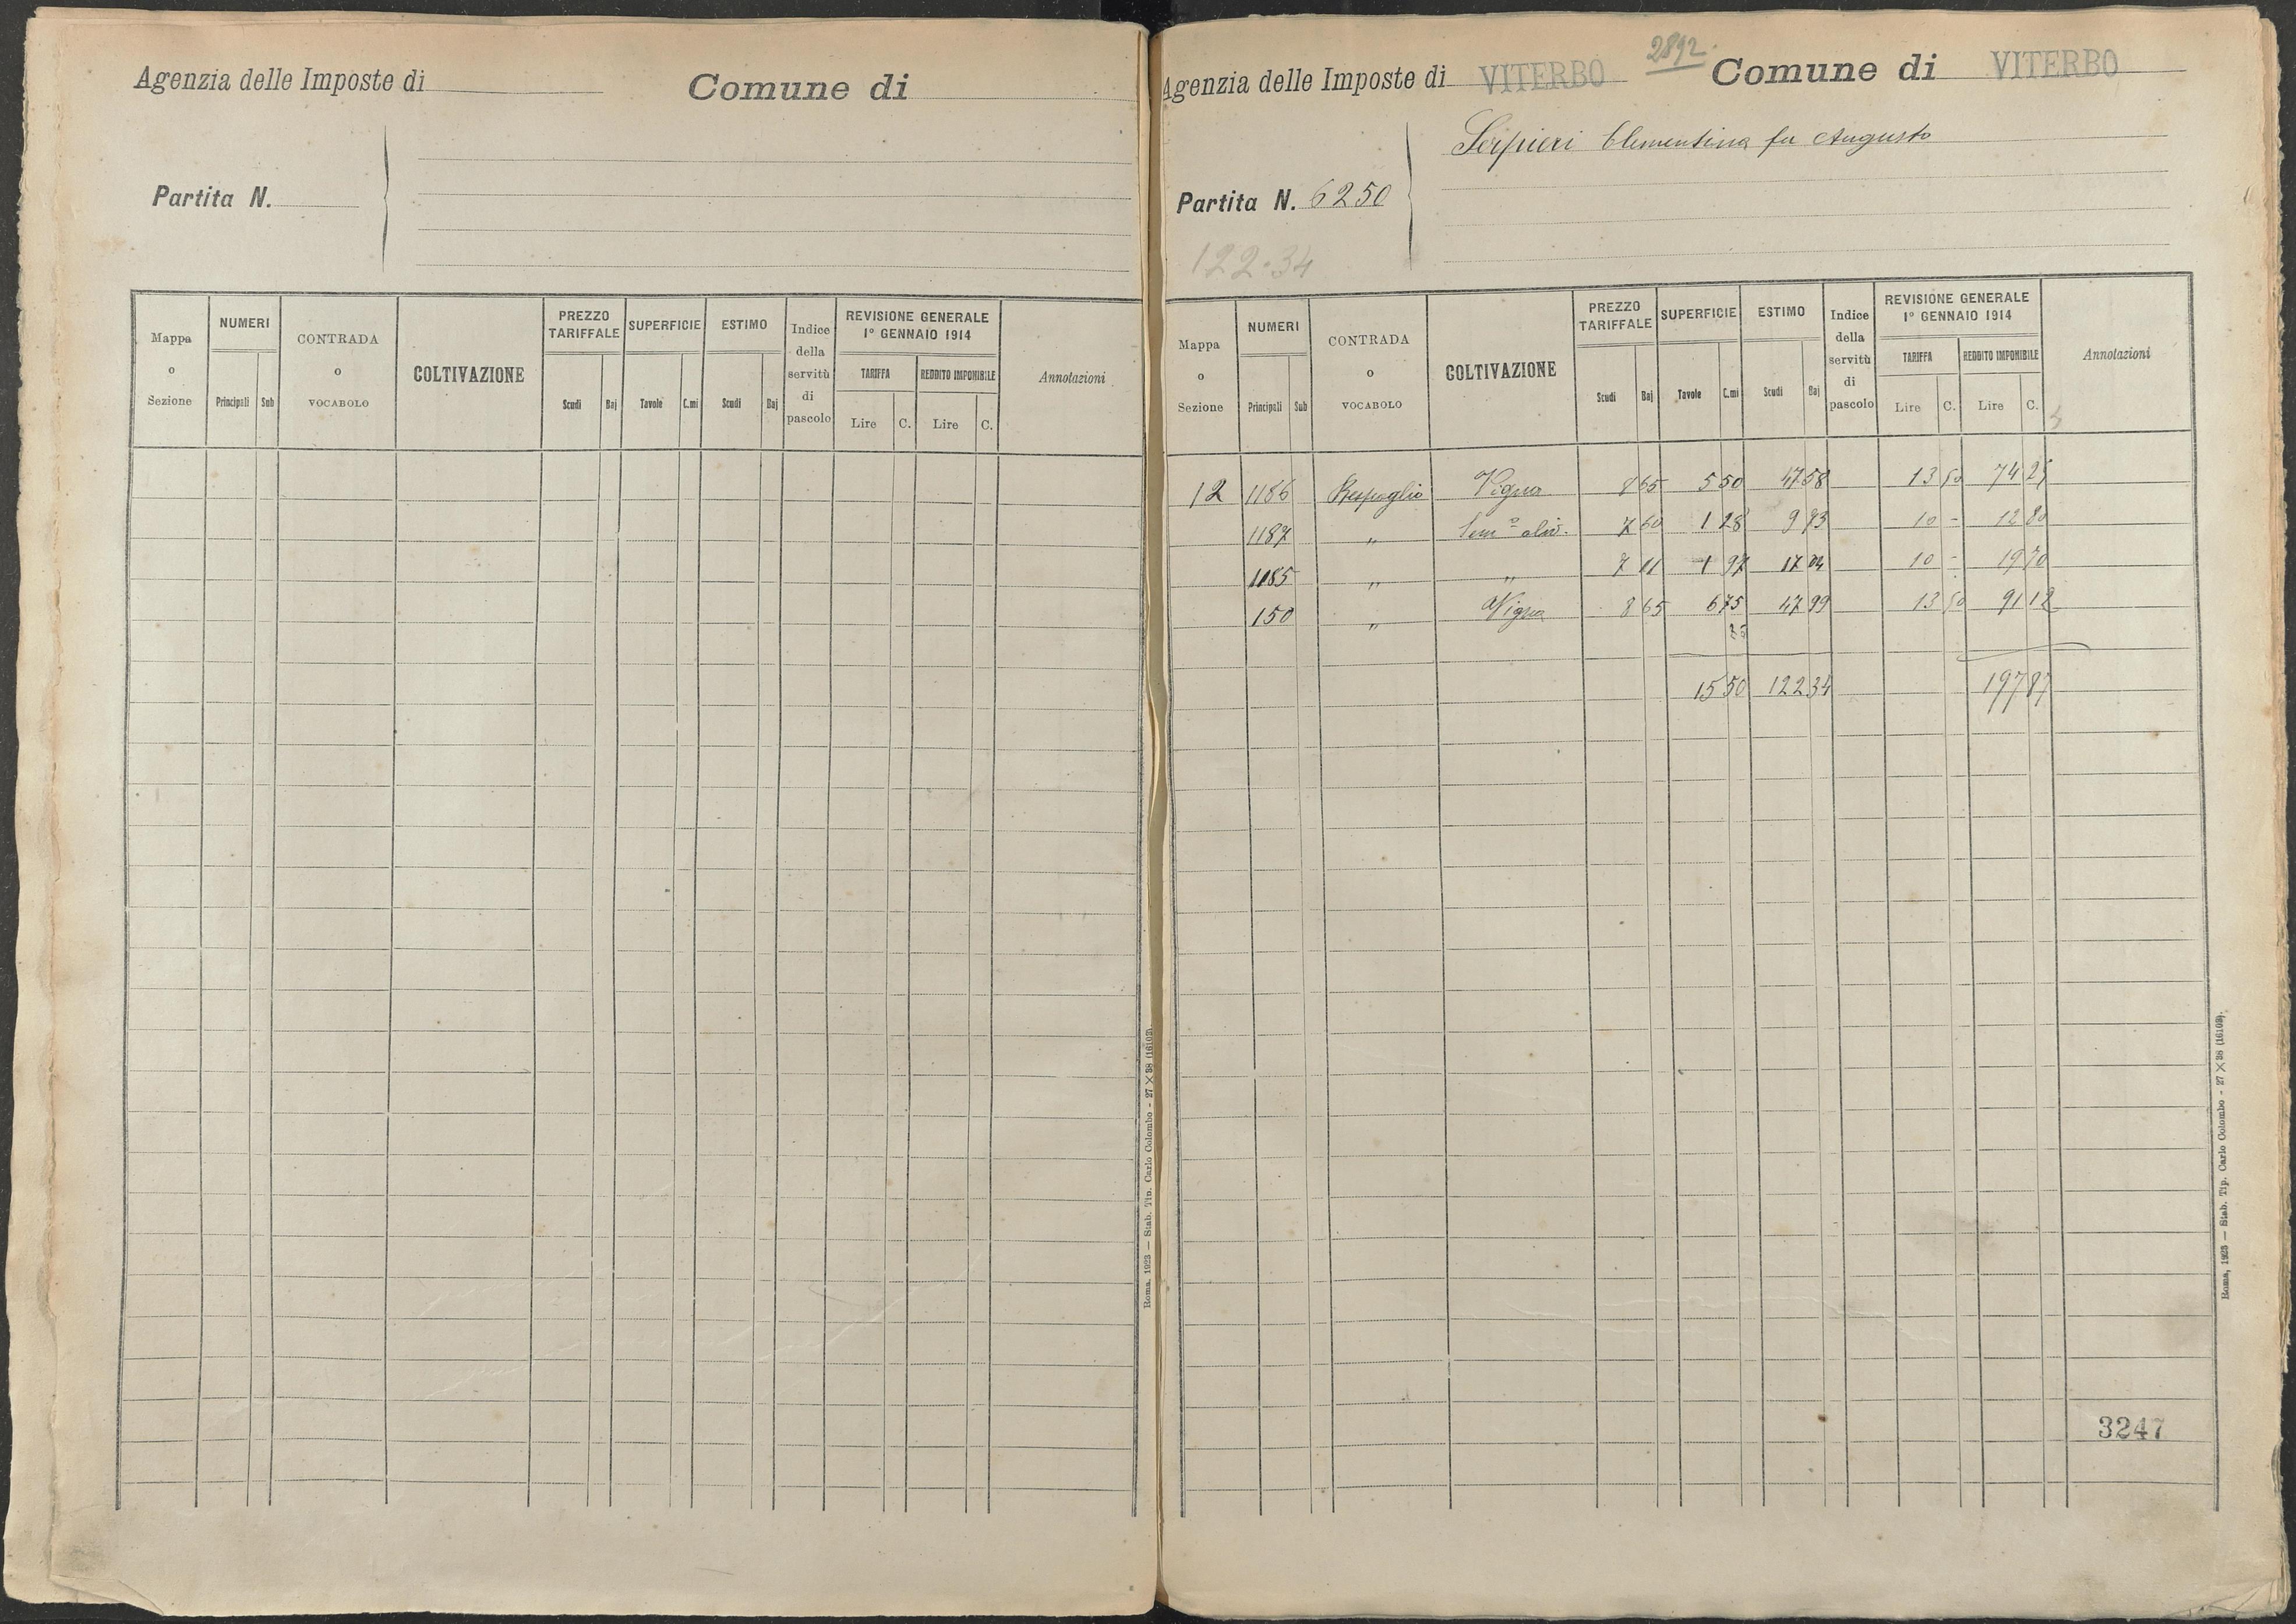 Agenzia delle Imposte di
Comune di
Partita N.
Mappa o Sezione
NUMERI
Principali Sub
CONTRADA o VOCABOLO
COLTIVAZIONE
PREZZO TARIFFALE
Scudi Baj
SUPERFICIE
Tavole C.mi
ESTIMO
Scudi Baj
Indice della servitù di pascolo
REVISIONE GENERALE
1º GENNAIO 1914
TARIFFA REDDITO IMPONIBILE
Lire C. Lire C.
Annotazioni
Roma, 1923 — Stab. Tip. Carlo Colombo - 27 × 38 (16102).
2892
Agenzia delle Imposte di VITERBO Comune di VITERBO
Serpieri Clementina fu Augusto
Partita N. 6250
122.34
Mappa o Sezione
NUMERI
Principali Sub
CONTRADA o VOCABOLO
COLTIVAZIONE
PREZZO TARIFFALE
Scudi Baj
SUPERFICIE
Tavole C.mi
ESTIMO
Scudi Baj
Indice della servitù di pascolo
REVISIONE GENERALE
1º GENNAIO 1914
TARIFFA REDDITO IMPONIBILE
Lire C. Lire C.
Annotazioni
12 1186 Respoglio Vigna 8 65 5 50 47 58 13 50 74 25
1187 " Semº oliv. 7 60 1 28 9 73 10 - 12 80
1185 " " 7 11 1 97 17 04 10 - 19 70
150 " Vigna 8 65 6 75 47 99 13 50 91 12
15 50 122 34 197 87
3247
Roma, 1923 — Stab. Tip. Carlo Colombo - 27 × 38 (16102).